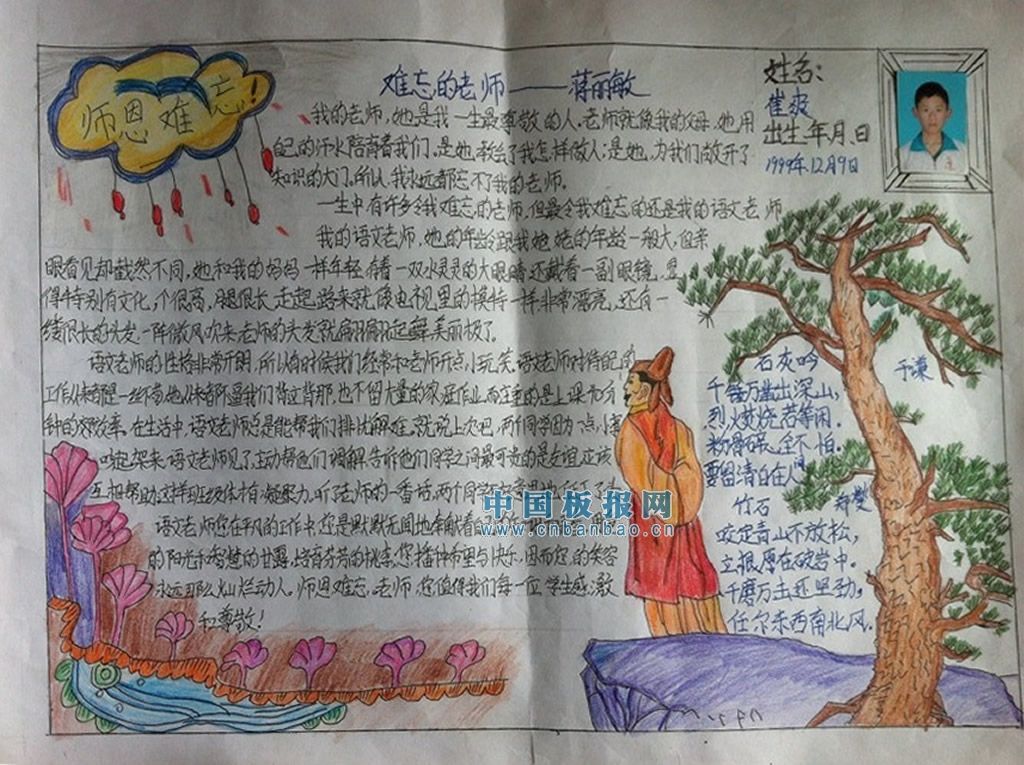 师恩难忘!
难忘的老师——蒋丽敏
姓名:
崔爽
出生年月日
1999年12月9日
我的老师,她是我一生最尊敬的人.老师就像我的父母,她用
自己的汗水陪育着我们,是她,教会了我怎样做人;是她,为我们敞开了
知识的大门.所以,我永远都忘不了我的老师。
一生中有许多令我难忘的老师,但最令我难忘的还是我的语文老师
我的语文老师,她的年龄跟我姥姥的年龄一般大,但亲
眼看见却截然不同,她和我的妈妈一样年轻,有着一双水灵灵的大眼睛,还戴着一副眼镜,显
得特别有文化,个很高,腿很长,走起路来就像电视里的模特一样,非常漂亮,还有一
缕很长的头发,一阵微风吹来,老师的头发就翩翩起舞,美丽极了。
语文老师的性格非常开朗,所以有时候我们经常和老师开点小玩笑.语文老师对待自己的
工作从来都是一丝不苟,她从来都不逼我们背这背那,也不留大量的家庭作业,而注重的是上课40分
钟的效率.在生活中,语文老师总是能帮我们排忧解难.就说上次吧,两个同学因为一点小事
吵起架来,语文老师见了,主动帮他们调解,告诉他们同学之间最可贵的是友谊,应该
互相帮助,这样班级体才有凝聚力.听了老师的一番话,两个同学
语文老师,您在平凡的工作中,您是默默无闻地奉献着
的阳光和智慧的甘露,培育芬芳的桃李,您播种希望与快乐,因而您的笑容
永远那么灿烂动人。师恩难忘,老师,您值得我们每一位学生感激
和尊敬!
石灰吟
于谦
千锤万凿出深山,
烈火焚烧若等闲.
粉骨碎 全不怕.
要留清白在人间
竹石
郑燮
咬定青山不放松,
立根原在破岩中.
千磨万击还坚劲,
任尔东西南北风.
中国板报网
www.cnbanbao.cn